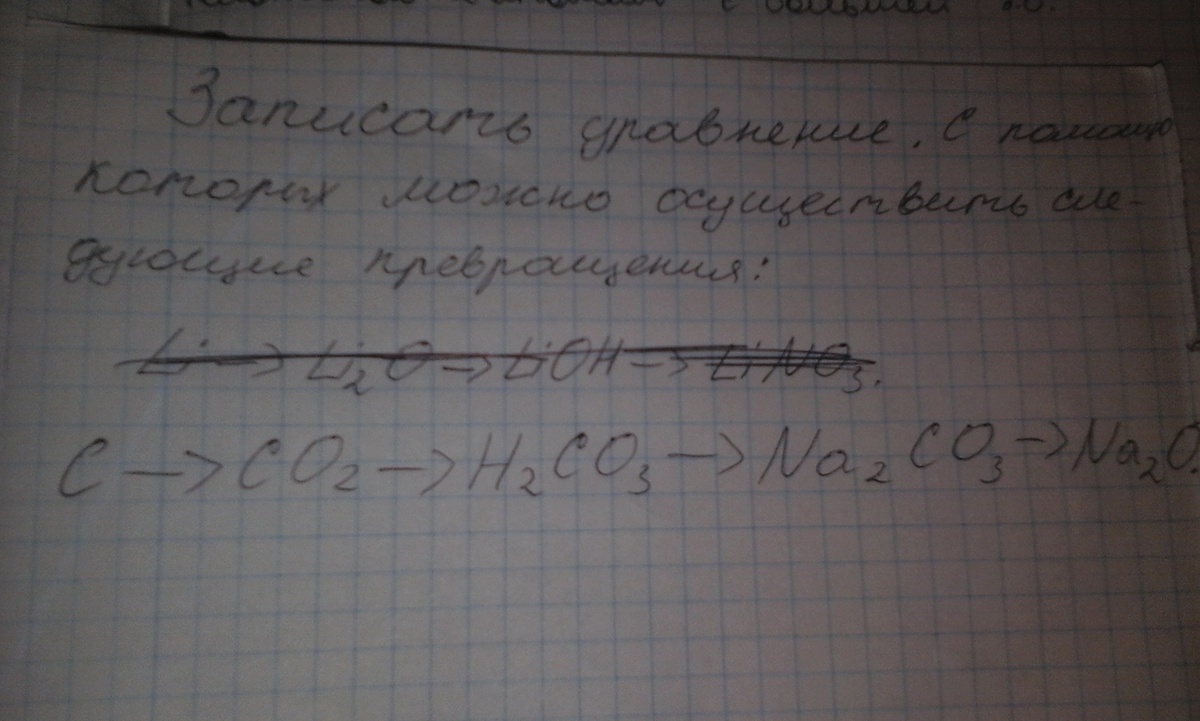 с большей
Записать уравнение, с помощью
которых можно осуществить сле-
дующие превращения:
Li → Li₂O → LiOH → LiNO₃.
C → CO₂ → H₂CO₃ → Na₂CO₃ → Na₂O.